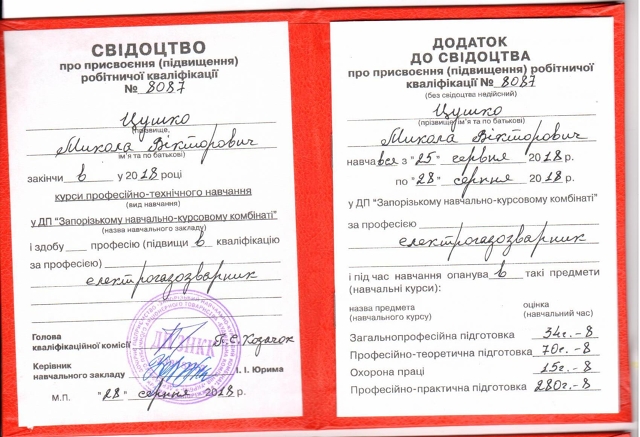 СВІДОЦТВО
про присвоєння (підвищення)
робітничої кваліфікації
№ 8087
Цушко
(прізвище,
Микола Вікторович
ім'я та по батькові)
закінчи в у 2018 році
курси професійно-технічного навчання
(вид навчання)
у ДП "Запорізькому навчально-курсовому комбінаті"
(назва навчального закладу)
і здобу професію (підвищи в кваліфікацію
за професією)
електрогазозварник
Голова
кваліфікаційної комісії П.Є. Козачок
Керівник
навчального закладу І. І. Юрима
М.П. "28" серпня 2018 р.
ДОДАТОК
ДО СВІДОЦТВА
про присвоєння (підвищення) робітничої
кваліфікації № 8087
(без свідоцтва недійсний)
Цушко
(прізвище, ім'я та по батькові)
Микола Вікторович
навча вся з "25" червня 2018 р.
по "28" серпня 2018 р.
у ДП "Запорізькому навчально-курсовому комбінаті"
за професією
електрогазозварник
і під час навчання опанува в такі предмети
(навчальні курси):
назва предмета оцінка
(навчального курсу) (навчальний час)
Загальнопрофесійна підготовка 34г.-8
Професійно-теоретична підготовка 70г.-8
Охорона праці 15г.-8
Професійно-практична підготовка 280г.-8